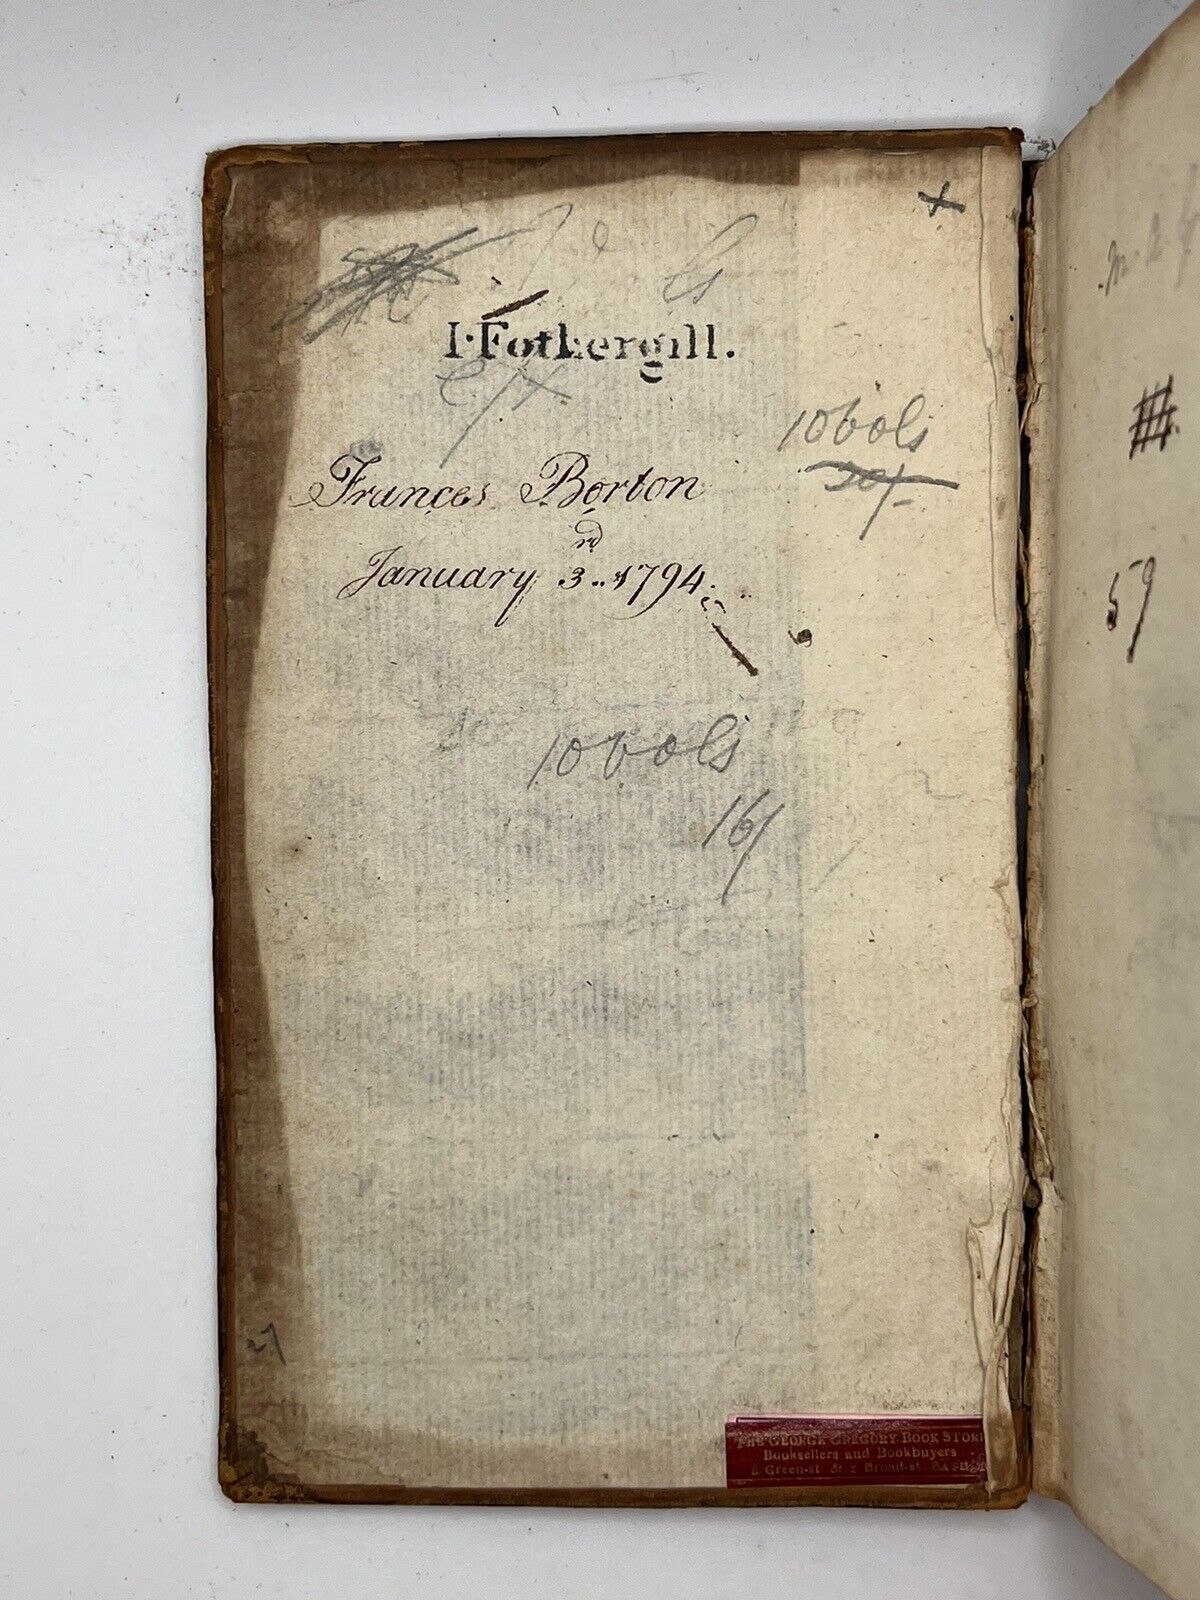 I·Fothergill.
10 vols
20/-
Frances Borton
January 3rd 1794
10 vols
16/
27
59
THE GEORGE GREGORY BOOK STORE
Booksellers and Bookbuyers
Green-st & Broad-st BATH